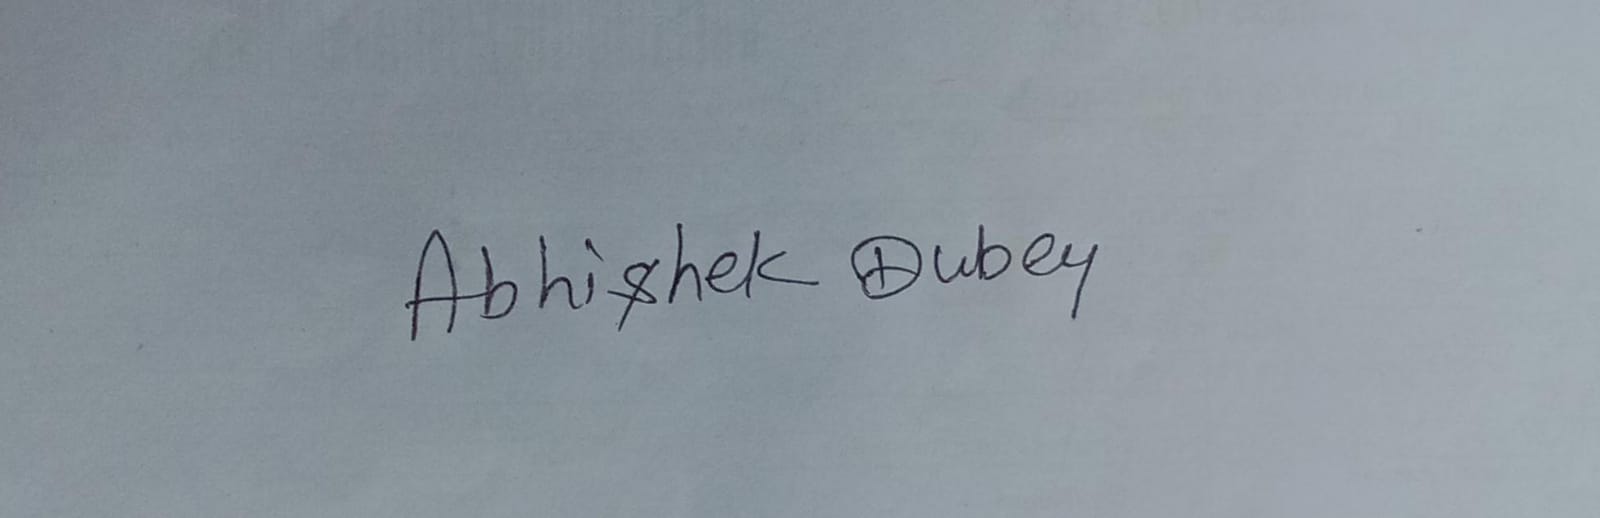 Abhishek Dubey